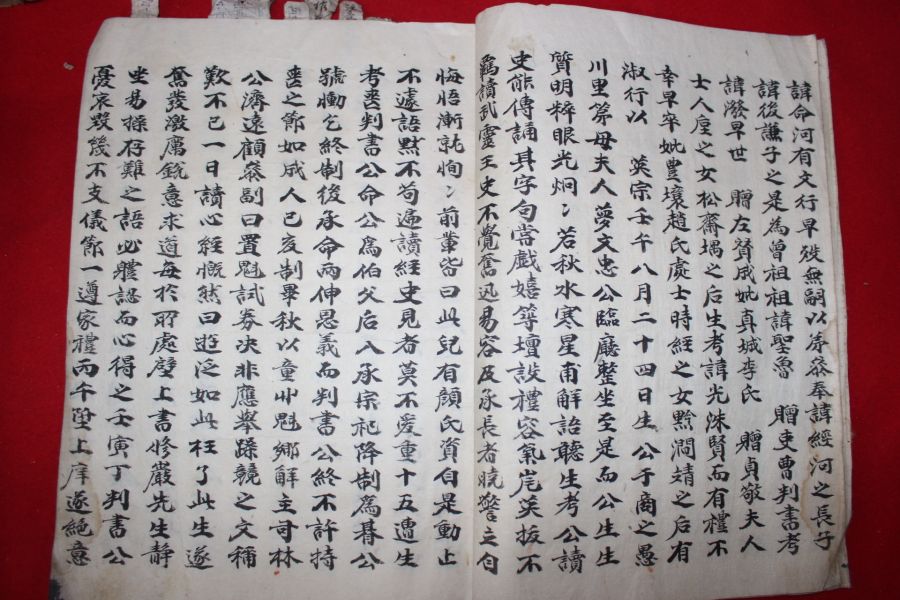 諱命河有文行早歿無嗣以弟參奉諱經河之長子
諱後謙子之是為曾祖祖諱聖魯 贈吏曹判書考
諱潑早世 贈左贊成妣真城李氏 贈貞敬夫人
士人㕓之女松齋堣之后生考諱光洙賢而有禮不
幸早卒妣豊壤趙氏處士時經之女黔澗靖之后有
淑行以 英宗壬午八月二十四日生 公于商之愚
川里第母夫人夢文忠公臨廳整坐至是而公生生
質明粹眼光炯〻若秋水寒星甫解語聽生考公讀
史能傳誦其字句嘗戲嬉筭壇設禮容氣岸英拔不
羈讀武靈王史不覺奮迅易容及承長者曉警之旨
悔悟漸就恂〻前輩皆曰此兒有顏氏資自是動止
不遽語默不苟遍讀經史見者莫不愛重十五遭生
考喪判書公命公為伯父后入承宗祀降制為朞公
號慟乞終制後承命兩伸恩義而判書公終不許持
喪之節如成人己亥制畢秋以童丱魁鄉解主司林
公濟遠顧叅副曰置魁試券決非應舉躁競之文稱
歎不已一日讀心經慨然曰遊泛如此枉了此生遂
奮發激厲銳意求道每於所處壁上書修嚴先生靜
坐易操存難之語必軆認而心得之壬寅丁判書公
憂哀毀幾不支儀節一遵家禮丙午陞上庠遂絕意